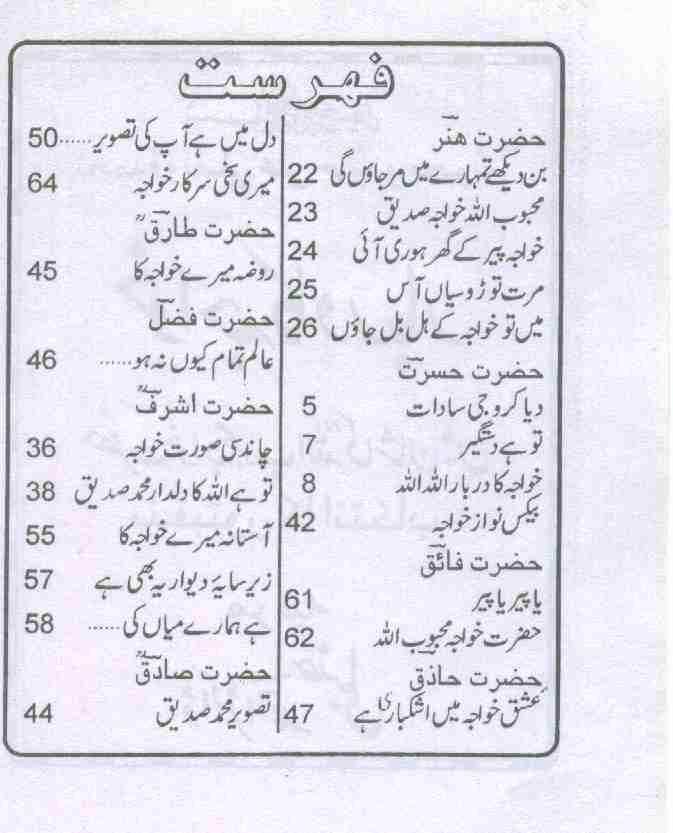 فہرست
حضرت ھنر
بن دیکھے تمہارے میں مر جاؤں گی 22
محبوب اللہ خواجہ صدیق 23
خواجہ پیر کے گھر ہوری آئی 24
مرت توڑوسیاں آس 25
میں تو خواجہ کے ہل بل جاؤں 26
حضرت حسرت
دیا کرو جی سادات 5
تو ہے دستگیر 7
خواجہ کا دربار اللہ اللہ 8
بیکس نواز خواجہ 42
حضرت فائق
یا پیر یا پیر 61
حضرت خواجہ محبوب اللہ 62
حضرت حاذق
عشق خواجہ میں اشکباری ہے 47
دل میں ہے آپ کی تصویر...... 50
میری سخی سرکار خواجہ 64
حضرت طارق
روضہ میرے خواجہ کا 45
حضرت فضل
عالم تمام کیوں نہ ہو...... 46
حضرت اشرف
چاند سی صورت خواجہ 36
تو ہے اللہ کا دلدار محمد صدیق 38
آستانہ میرے خواجہ کا 55
زیر سایۂ دیوار یہ بھی ہے 57
ہے ہمارے میاں کی ...... 58
حضرت صادق
تصویر محمد صدیق 44